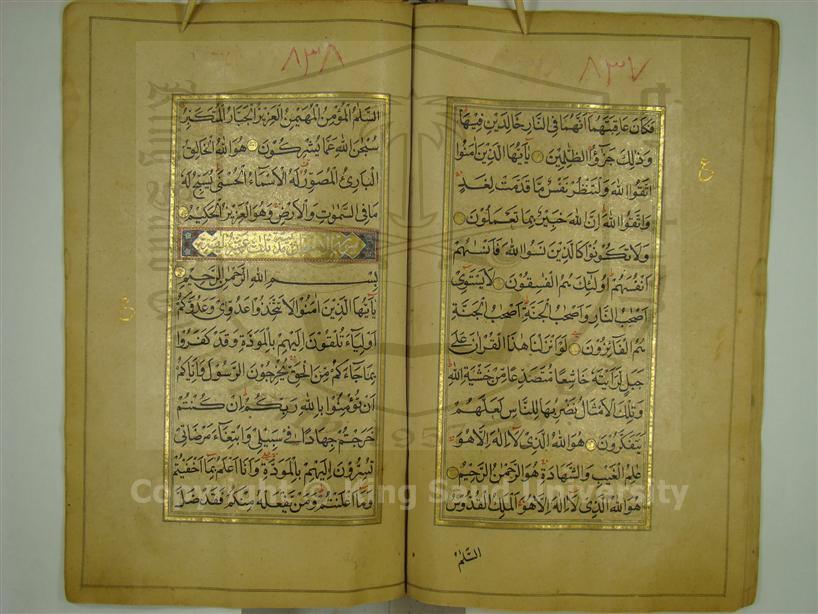 ٨٣٧
فكان عاقبتهما انهما في النار خالدين فيها
وذلك جزؤا الظلمين يايها الذين امنوا
اتقوا الله ولتنظر نفس ما قدمت لغد
واتقوا الله ان الله خبير بما تعملون
ولا تكونوا كالذين نسوا الله فانسيهم
انفسهم اولئك هم الفسقون لا يستوي
اصحب النار واصحب الجنة اصحب الجنة
هم الفائزون لو انزلنا هذا القران على
جبل لرايته خاشعا متصدعا من خشية الله
وتلك الامثال نضربها للناس لعلهم
يتفكرون هو الله الذي لا اله الا هو
علم الغيب والشهادة هو الرحمن الرحيم
هو الله الذي لا اله الا هو الملك القدوس
السلم
ع
٨٣٨
السلم المؤمن المهيمن العزيز الجبار المتكبر
سبحن الله عما يشركون هو الله الخالق
البارئ المصور له الاسماء الحسنى يسبح له
ما في السموت والارض وهو العزيز الحكيم
بسم الله الرحمن الرحيم
يايها الذين امنوا لا تتخذوا عدوي وعدوكم
اولياء تلقون اليهم بالمودة وقد كفروا
بما جاءكم من الحق يخرجون الرسول واياكم
ان تؤمنوا بالله ربكم ان كنتم
خرجتم جهادا في سبيلي وابتغاء مرضاتي
تسرون اليهم بالمودة وانا اعلم بما اخفيتم
وما اعلنتم ومن يفعله منكم فقد ضل
Copyright © King Saud University